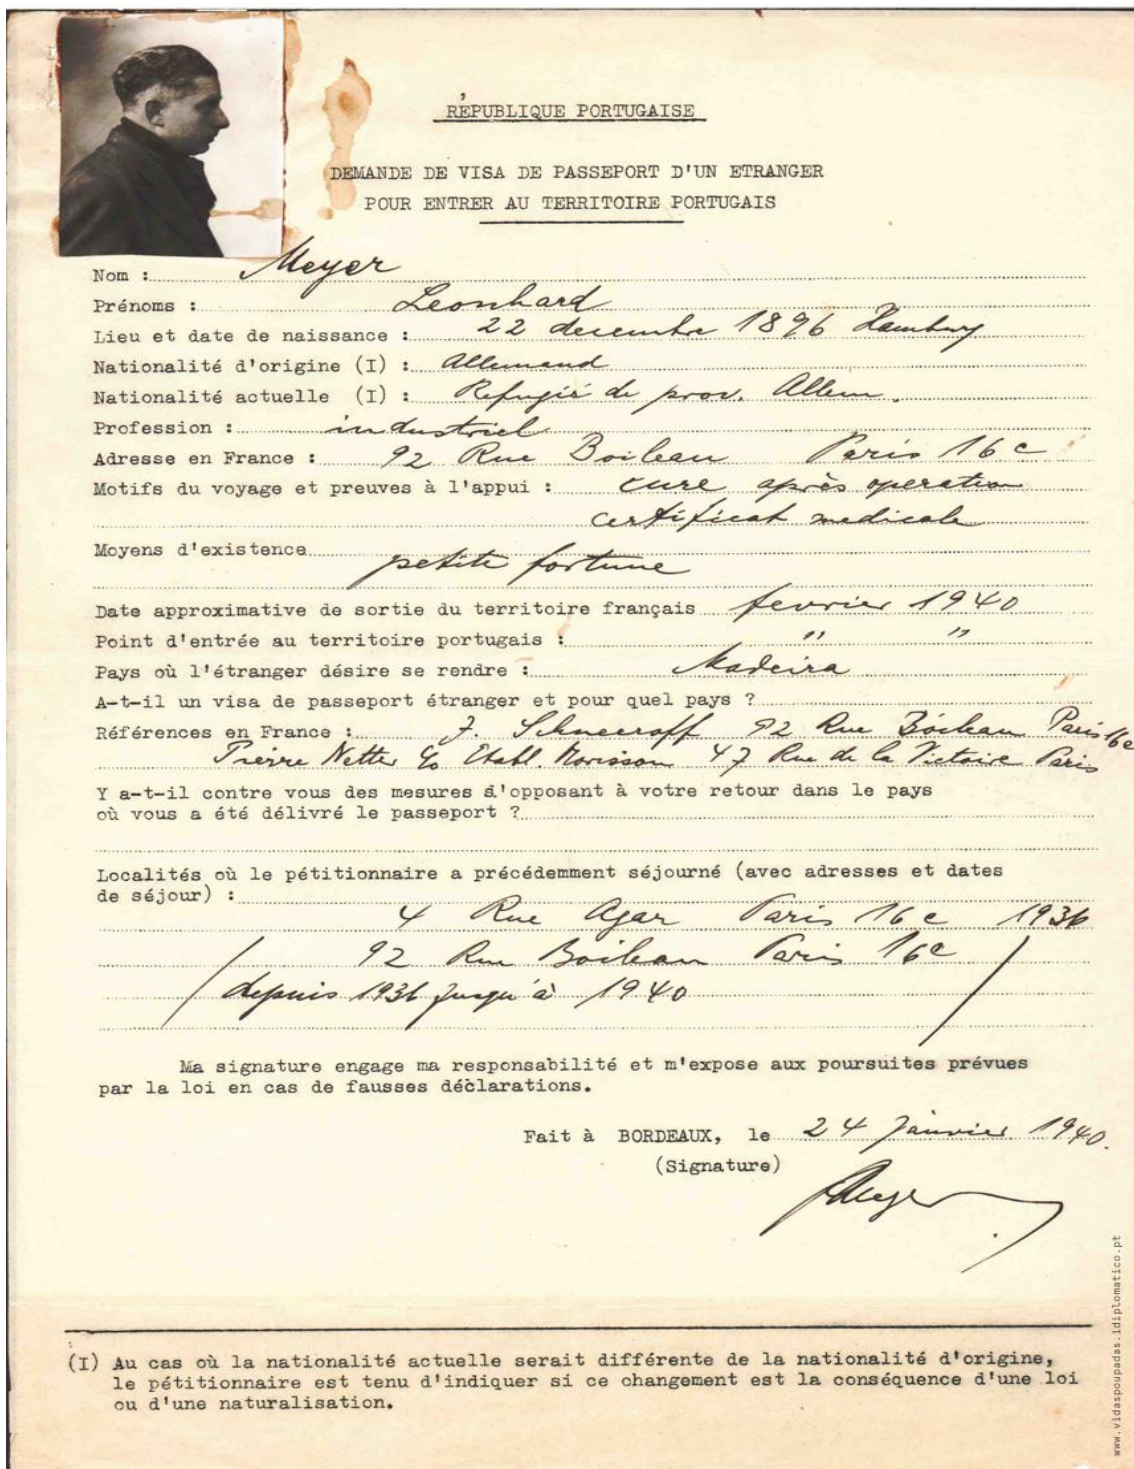 RÉPUBLIQUE PORTUGAISE
DEMANDE DE VISA DE PASSEPORT D'UN ETRANGER
POUR ENTRER AU TERRITOIRE PORTUGAIS
Nom : Meyer
Prénoms : Leonhard
Lieu et date de naissance : 22 decembre 1896 Hamburg
Nationalité d'origine (I) : Allemand
Nationalité actuelle (I) : Refugié de prov. Allem.
Profession : industriel
Adresse en France : 92 Rue Boileau Paris 16e
Motifs du voyage et preuves à l'appui : cure après operation
certificat medicale
Moyens d'existence petite fortune
Date approximative de sortie du territoire français fevrier 1940
Point d'entrée au territoire portugais : " "
Pays où l'étranger désire se rendre : Madeira
A-t-il un visa de passeport étranger et pour quel pays ?
Références en France : J. Schneeroff 92 Rue Boileau Paris 16e
Pierre Netter c/o Etabl. Morisson 47 Rue de la Victoire Paris
Y a-t-il contre vous des mesures s'opposant à votre retour dans le pays
où vous a été délivré le passeport ?
Localités où le pétitionnaire a précédemment séjourné (avec adresses et dates
de séjour) :
4 Rue Agar Paris 16e 1936
92 Rue Boileau Paris 16e
depuis 1936 jusqu'à 1940
Ma signature engage ma responsabilité et m'expose aux poursuites prévues
par la loi en cas de fausses déclarations.
Fait à BORDEAUX, le 24 Janvier 1940.
(Signature)
LMeyer
(I) Au cas où la nationalité actuelle serait différente de la nationalité d'origine,
le pétitionnaire est tenu d'indiquer si ce changement est la conséquence d'une loi
ou d'une naturalisation.
www.vidaspoupadas.idiplomatico.pt